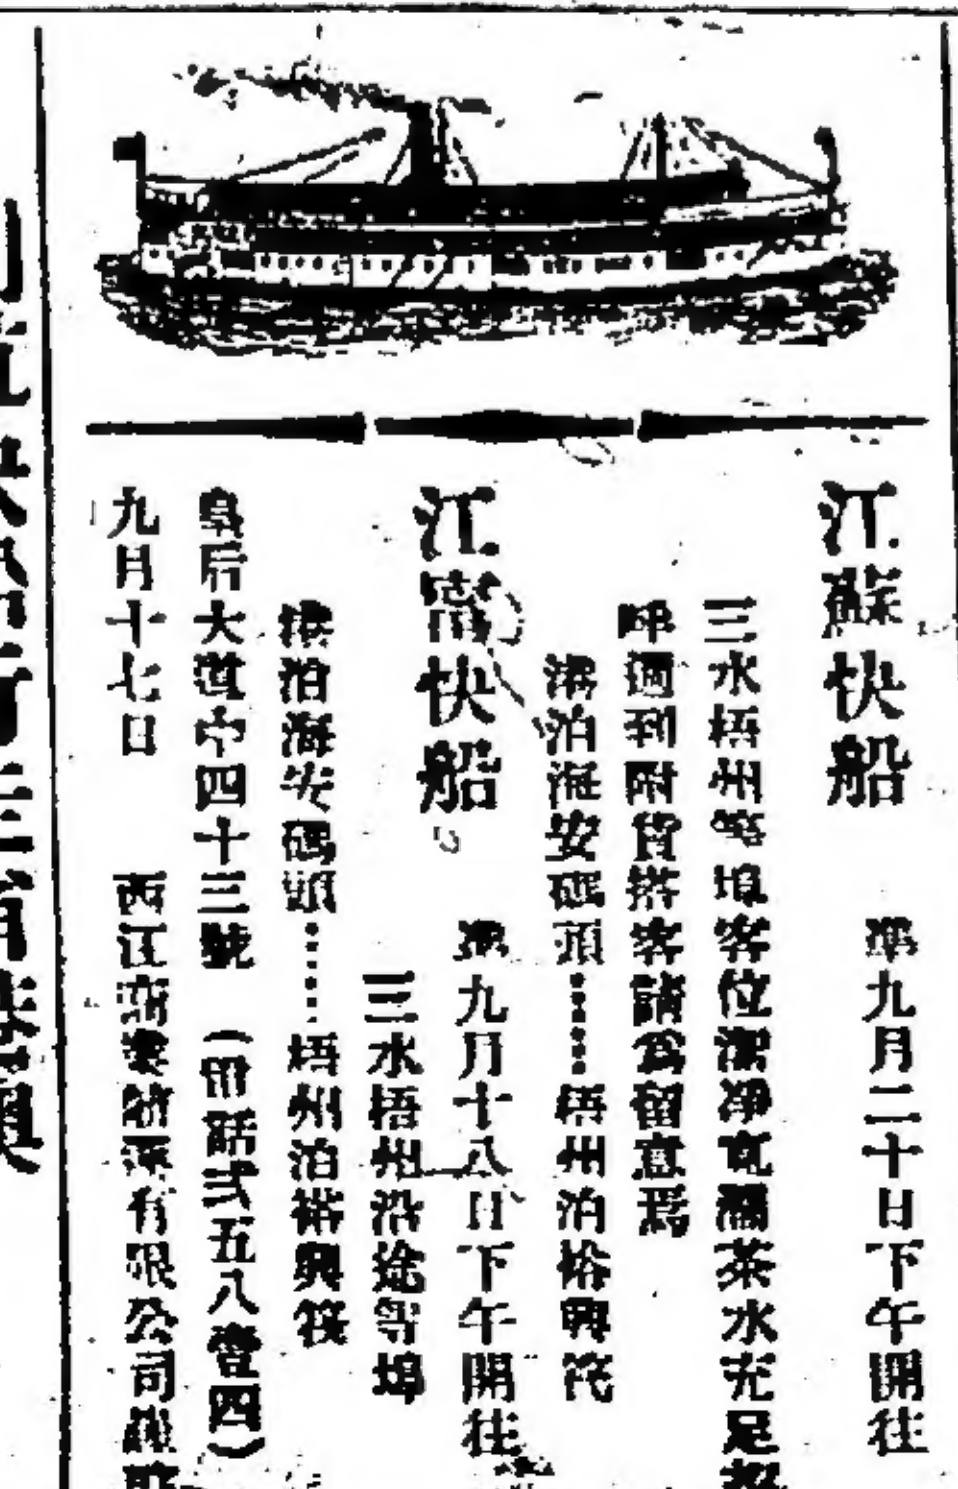 江蘇快船
準九月二十日下午開往
三水梧州等埠客位潔淨寬濶茶水充足招
呼週到附貨搭客請為留意焉
港泊海安碼頭⋯⋯梧州泊裕興筏
江富快船
準九月十八日下午開往
三水梧州沿途等埠
港泊海安碼頭⋯⋯梧州泊裕興筏
皇后大道中四十三號 (電話弍五八壹四)
九月十七日 西江 有限公司謹